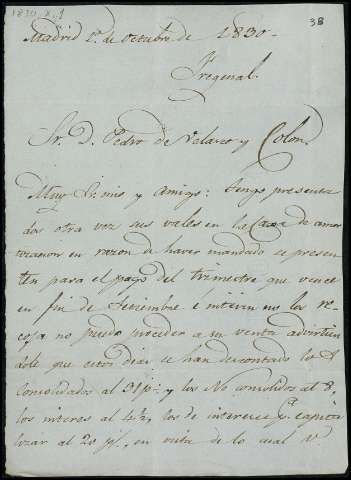 1830, X, 1
38
Madrid 1º de Octubre de 1830.
Fregenal.
Sr. D. Pedro de Velasco y Colon.
Muy Sr. mio y Amigo: tengo presenta
dos otra vez sus vales en la Caxa de amor
tizacion en razon de haver mandado se presen
ten para el pago del trimestre que vence
en fin de Setiembre e interin no los re-
coja no puedo proceder a su venta advirtien
dole que estos dias se han descontado los V.
Consolidados al 31 p; y los No consolidos al 8,
los interes al 4½, los de interes pª capita
lizar al 20 p%, en vista de lo cual V.